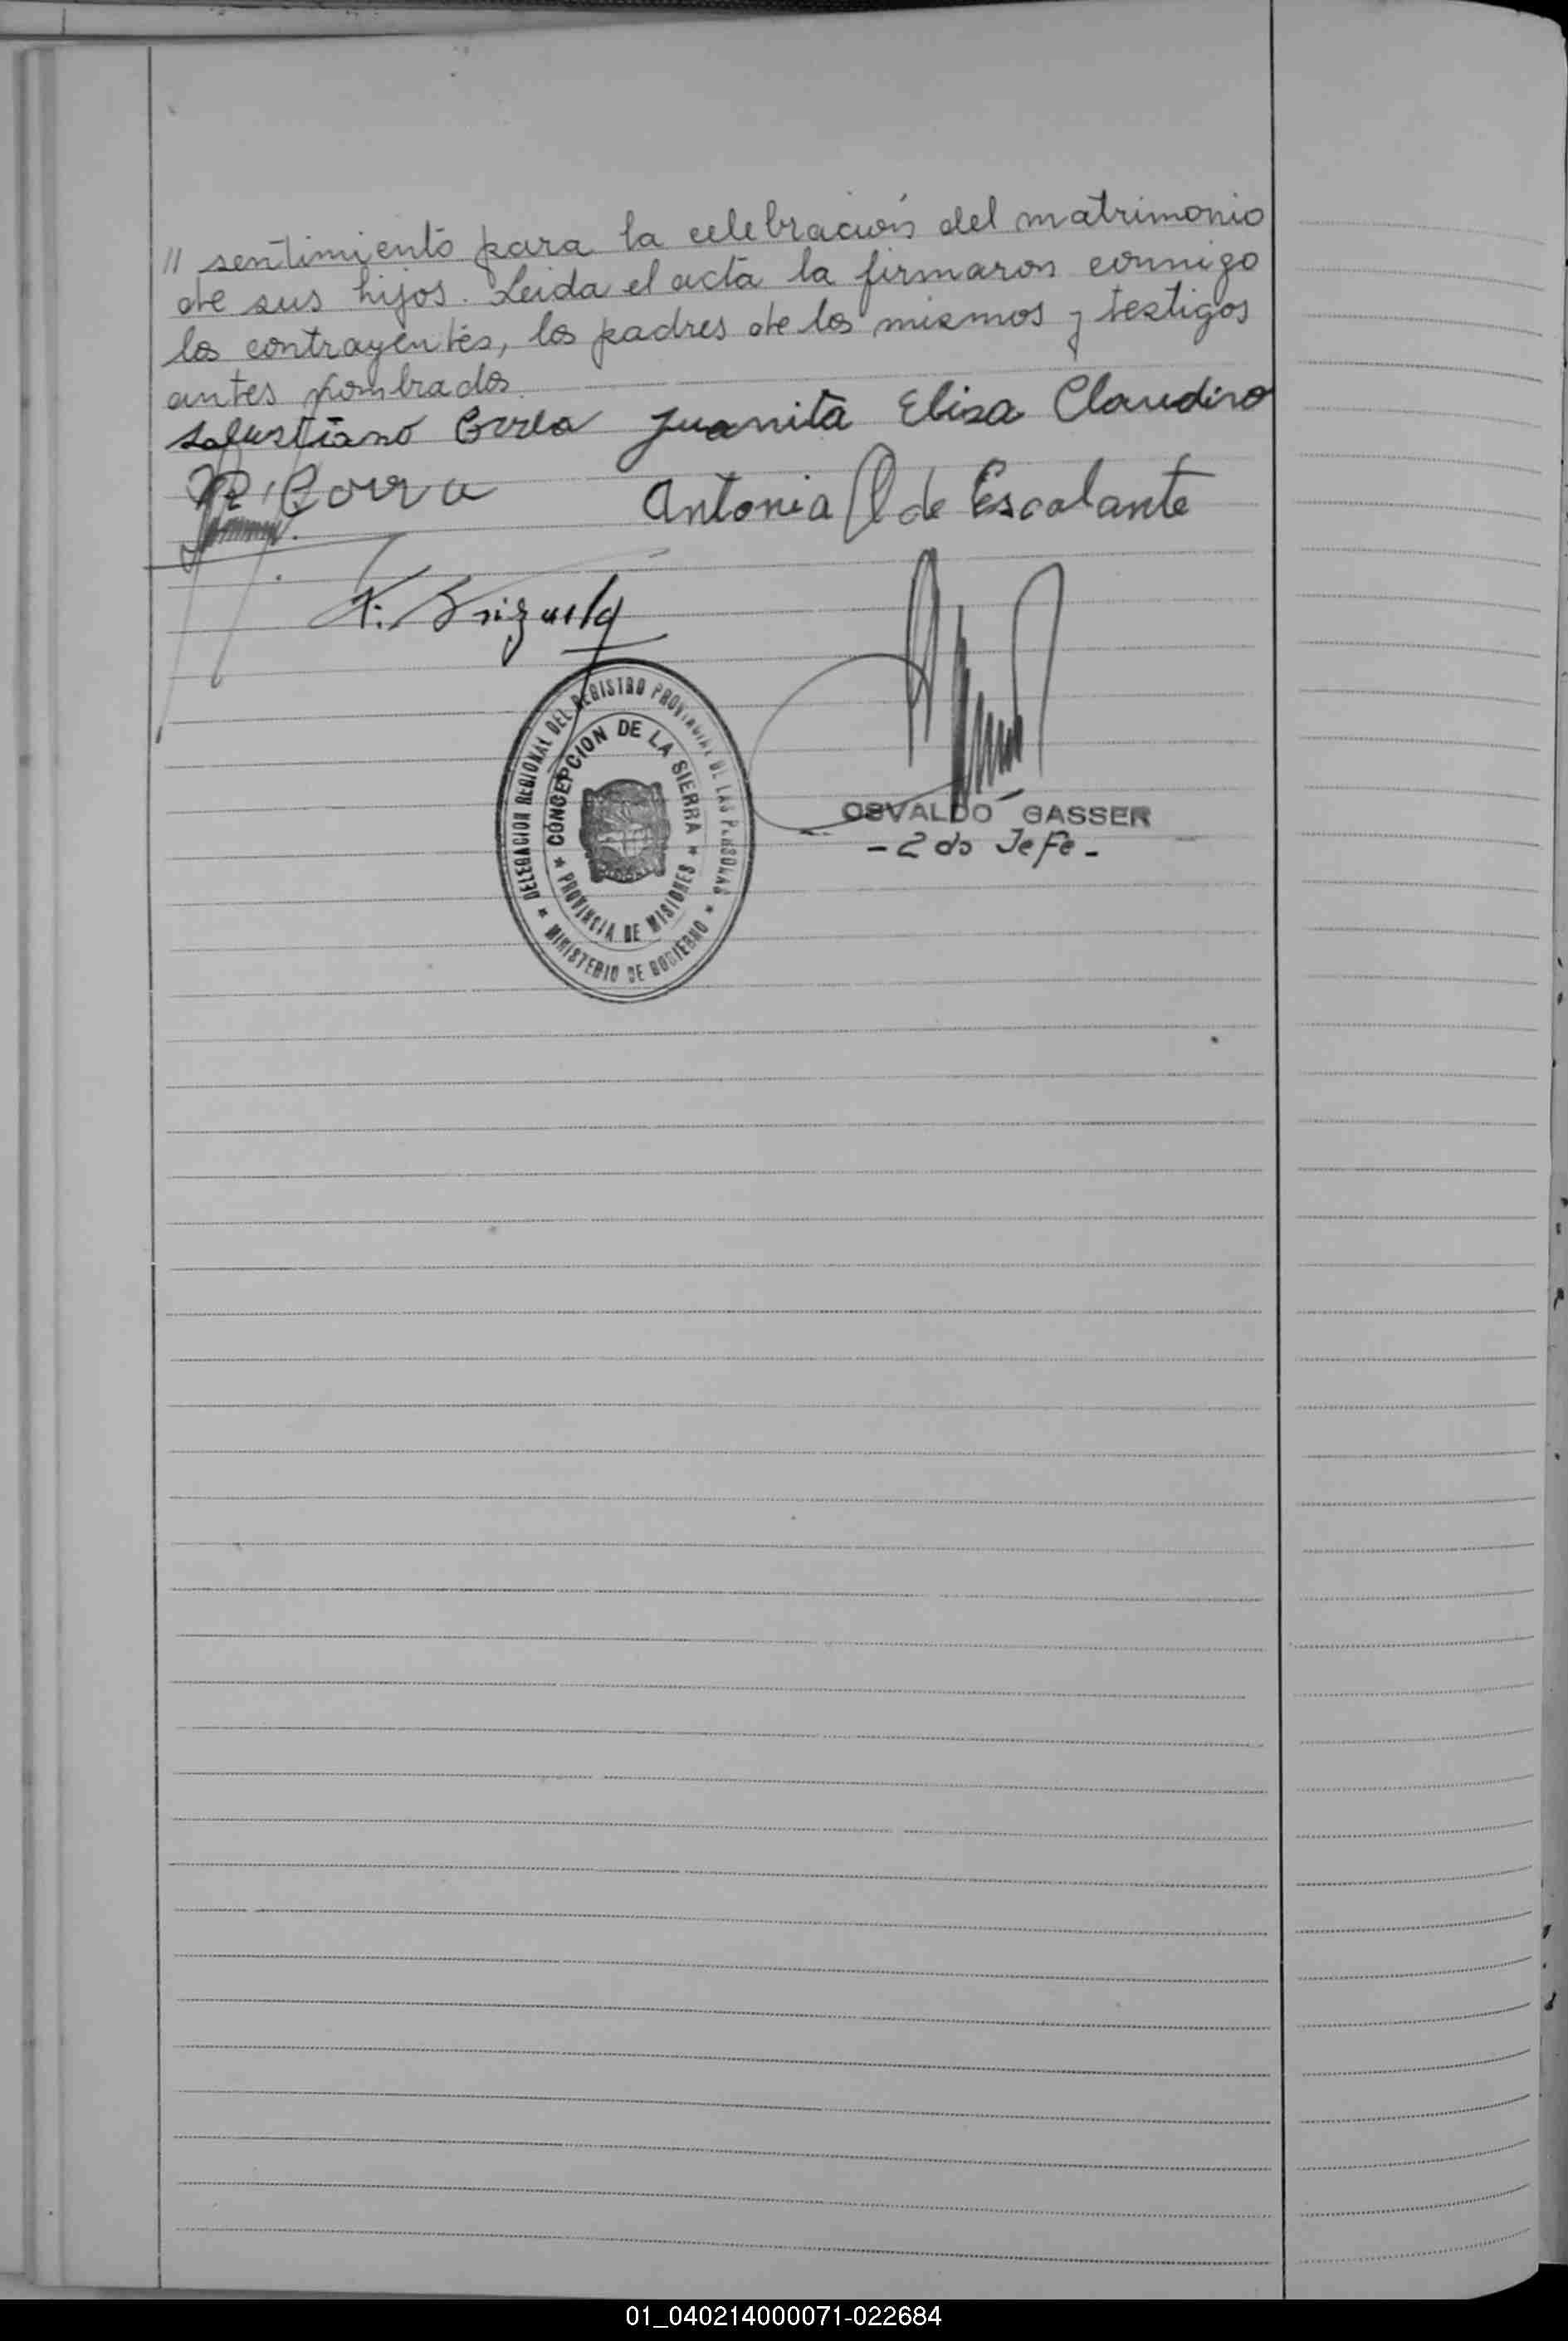 // sentimiento para la celebración del matrimonio
de sus hijos. Leida el acta la firmaron conmigo
los contrayentes, los padres de los mismos y testigos
antes nombrados.
Salustiano Correa Juanita Elisa Claudino
Correa Antonia de Escalante
OSVALDO GASSER
- 2do Jefe -
DELEGACION REGIONAL DEL REGISTRO PROVINCIAL DE LAS PERSONAS
CONCEPCION DE LA SIERRA
* PROVINCIA DE MISIONES *
* MINISTERIO DE GOBIERNO *
01_040214000071-022684